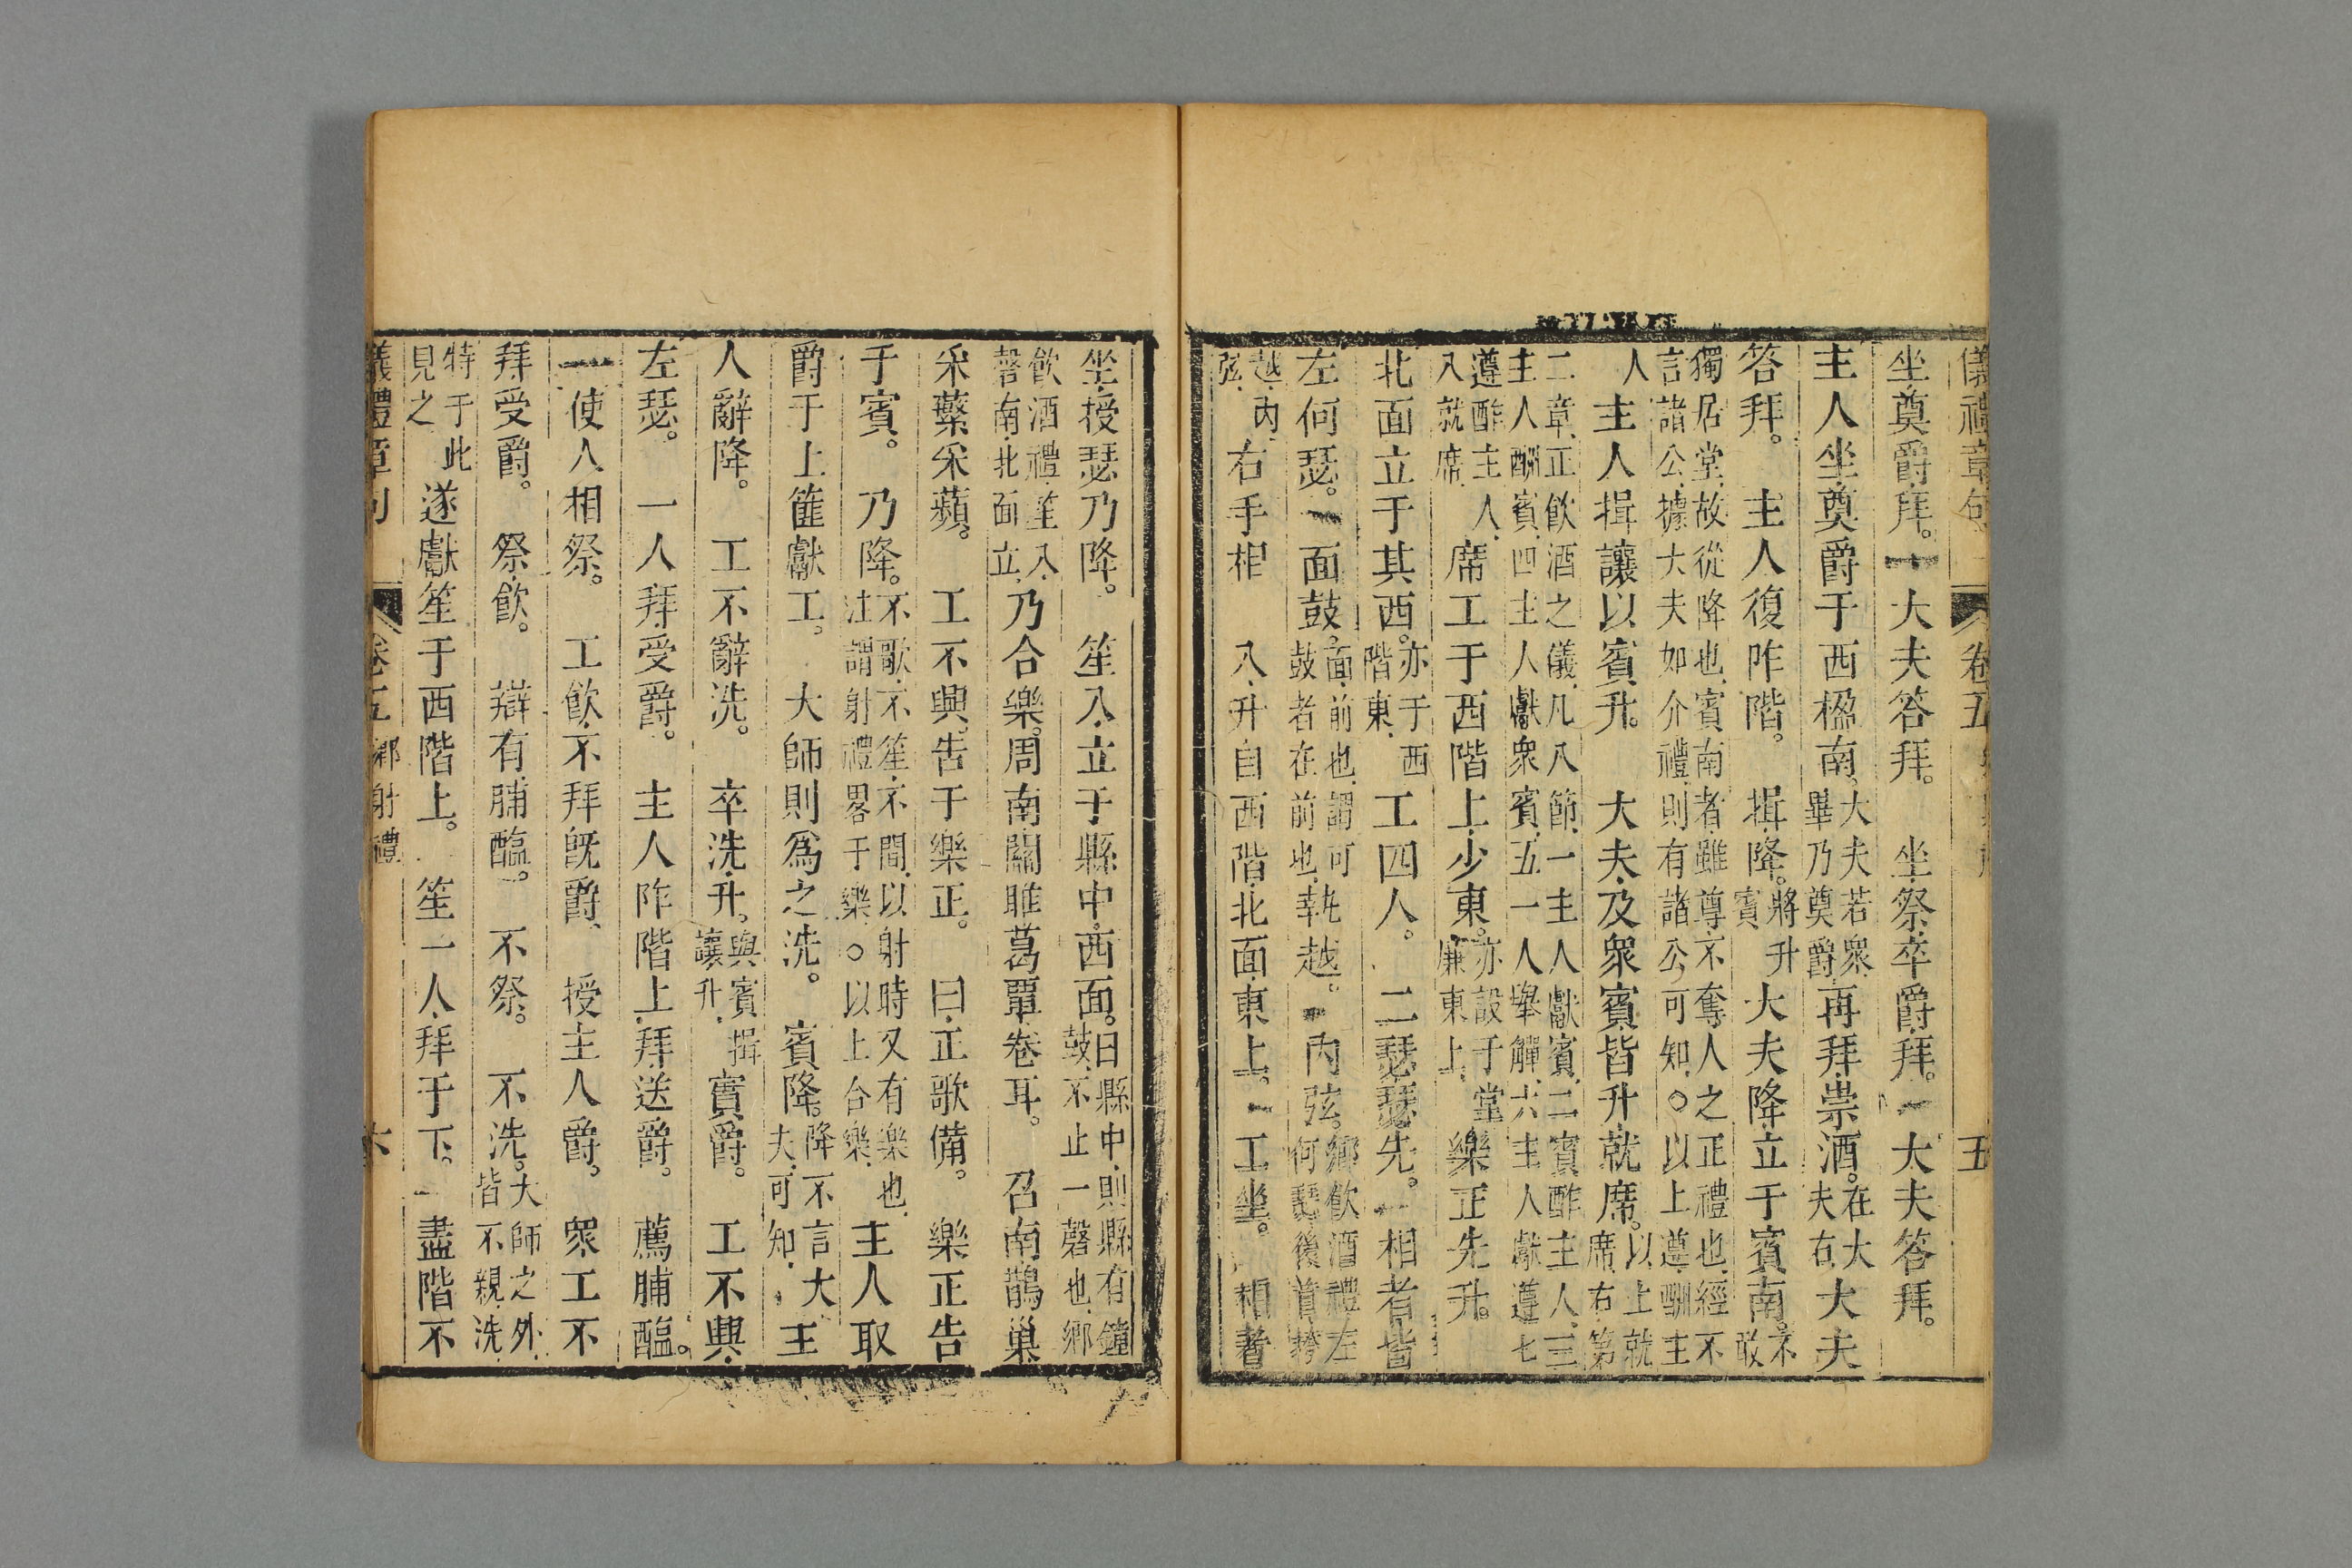 儀禮章句 卷五 五
坐奠爵拜。大夫答拜。坐祭卒爵拜。大夫答拜。
主人坐奠爵于西楹南。大夫若衆畢乃奠爵再拜崇酒。在大夫右大夫
答拜。主人復阼階。揖降。將升賓大夫降立于賓南。不敢
獨居堂故從降也賓南者雖尊不奪人之正禮也經不
言諸公據大夫如介禮則有諸公可知○以上遵酬主
人主人揖讓以賓升。大夫及衆賓皆升就席。以上就席右第
二章正飲酒之儀凡八節一主人獻賓二賓酢主人三
主人酬賓四主人獻衆賓五一人舉觶六主人獻遵七
遵酢主人八就席席工于西階上少東。亦設于堂廉東上樂正先升。
北面立于其西。亦于西階東工四人。二瑟瑟先。相者皆
左何瑟。面鼓。面前也謂可鼓者在前也執越。內弦。鄉飲酒禮左何瑟後首挎
越內弦右手相 入升自西階北面東上。工坐。相者
坐授瑟乃降。笙入立于縣中西面。曰縣中則縣有鐘鼓不止一磬也鄉
飲酒禮笙入磬南北面立乃合樂。周南關雎葛覃卷耳。召南鵲巢
采蘩采蘋。工不興告于樂正。曰正歌備。樂正告
于賓。乃降。不歌不笙不間以射時又有樂也注謂射禮畧于樂○以上合樂主人取
爵于上篚獻工。大師則爲之洗。賓降。降不言大夫可知主
人辭降。工不辭洗。卒洗升。與賓揖讓升實爵。工不興
左瑟。一人拜受爵。主人阼階上拜送爵。薦脯醢。
使人相祭。工飲不拜旣爵 授主人爵。衆工不
拜受爵。祭飲。辯有脯醢。不祭。不洗。大師之外皆不親洗
特于此見之遂獻笙于西階上。笙一人拜于下。盡階不
儀禮章句 卷五 鄉射禮 六